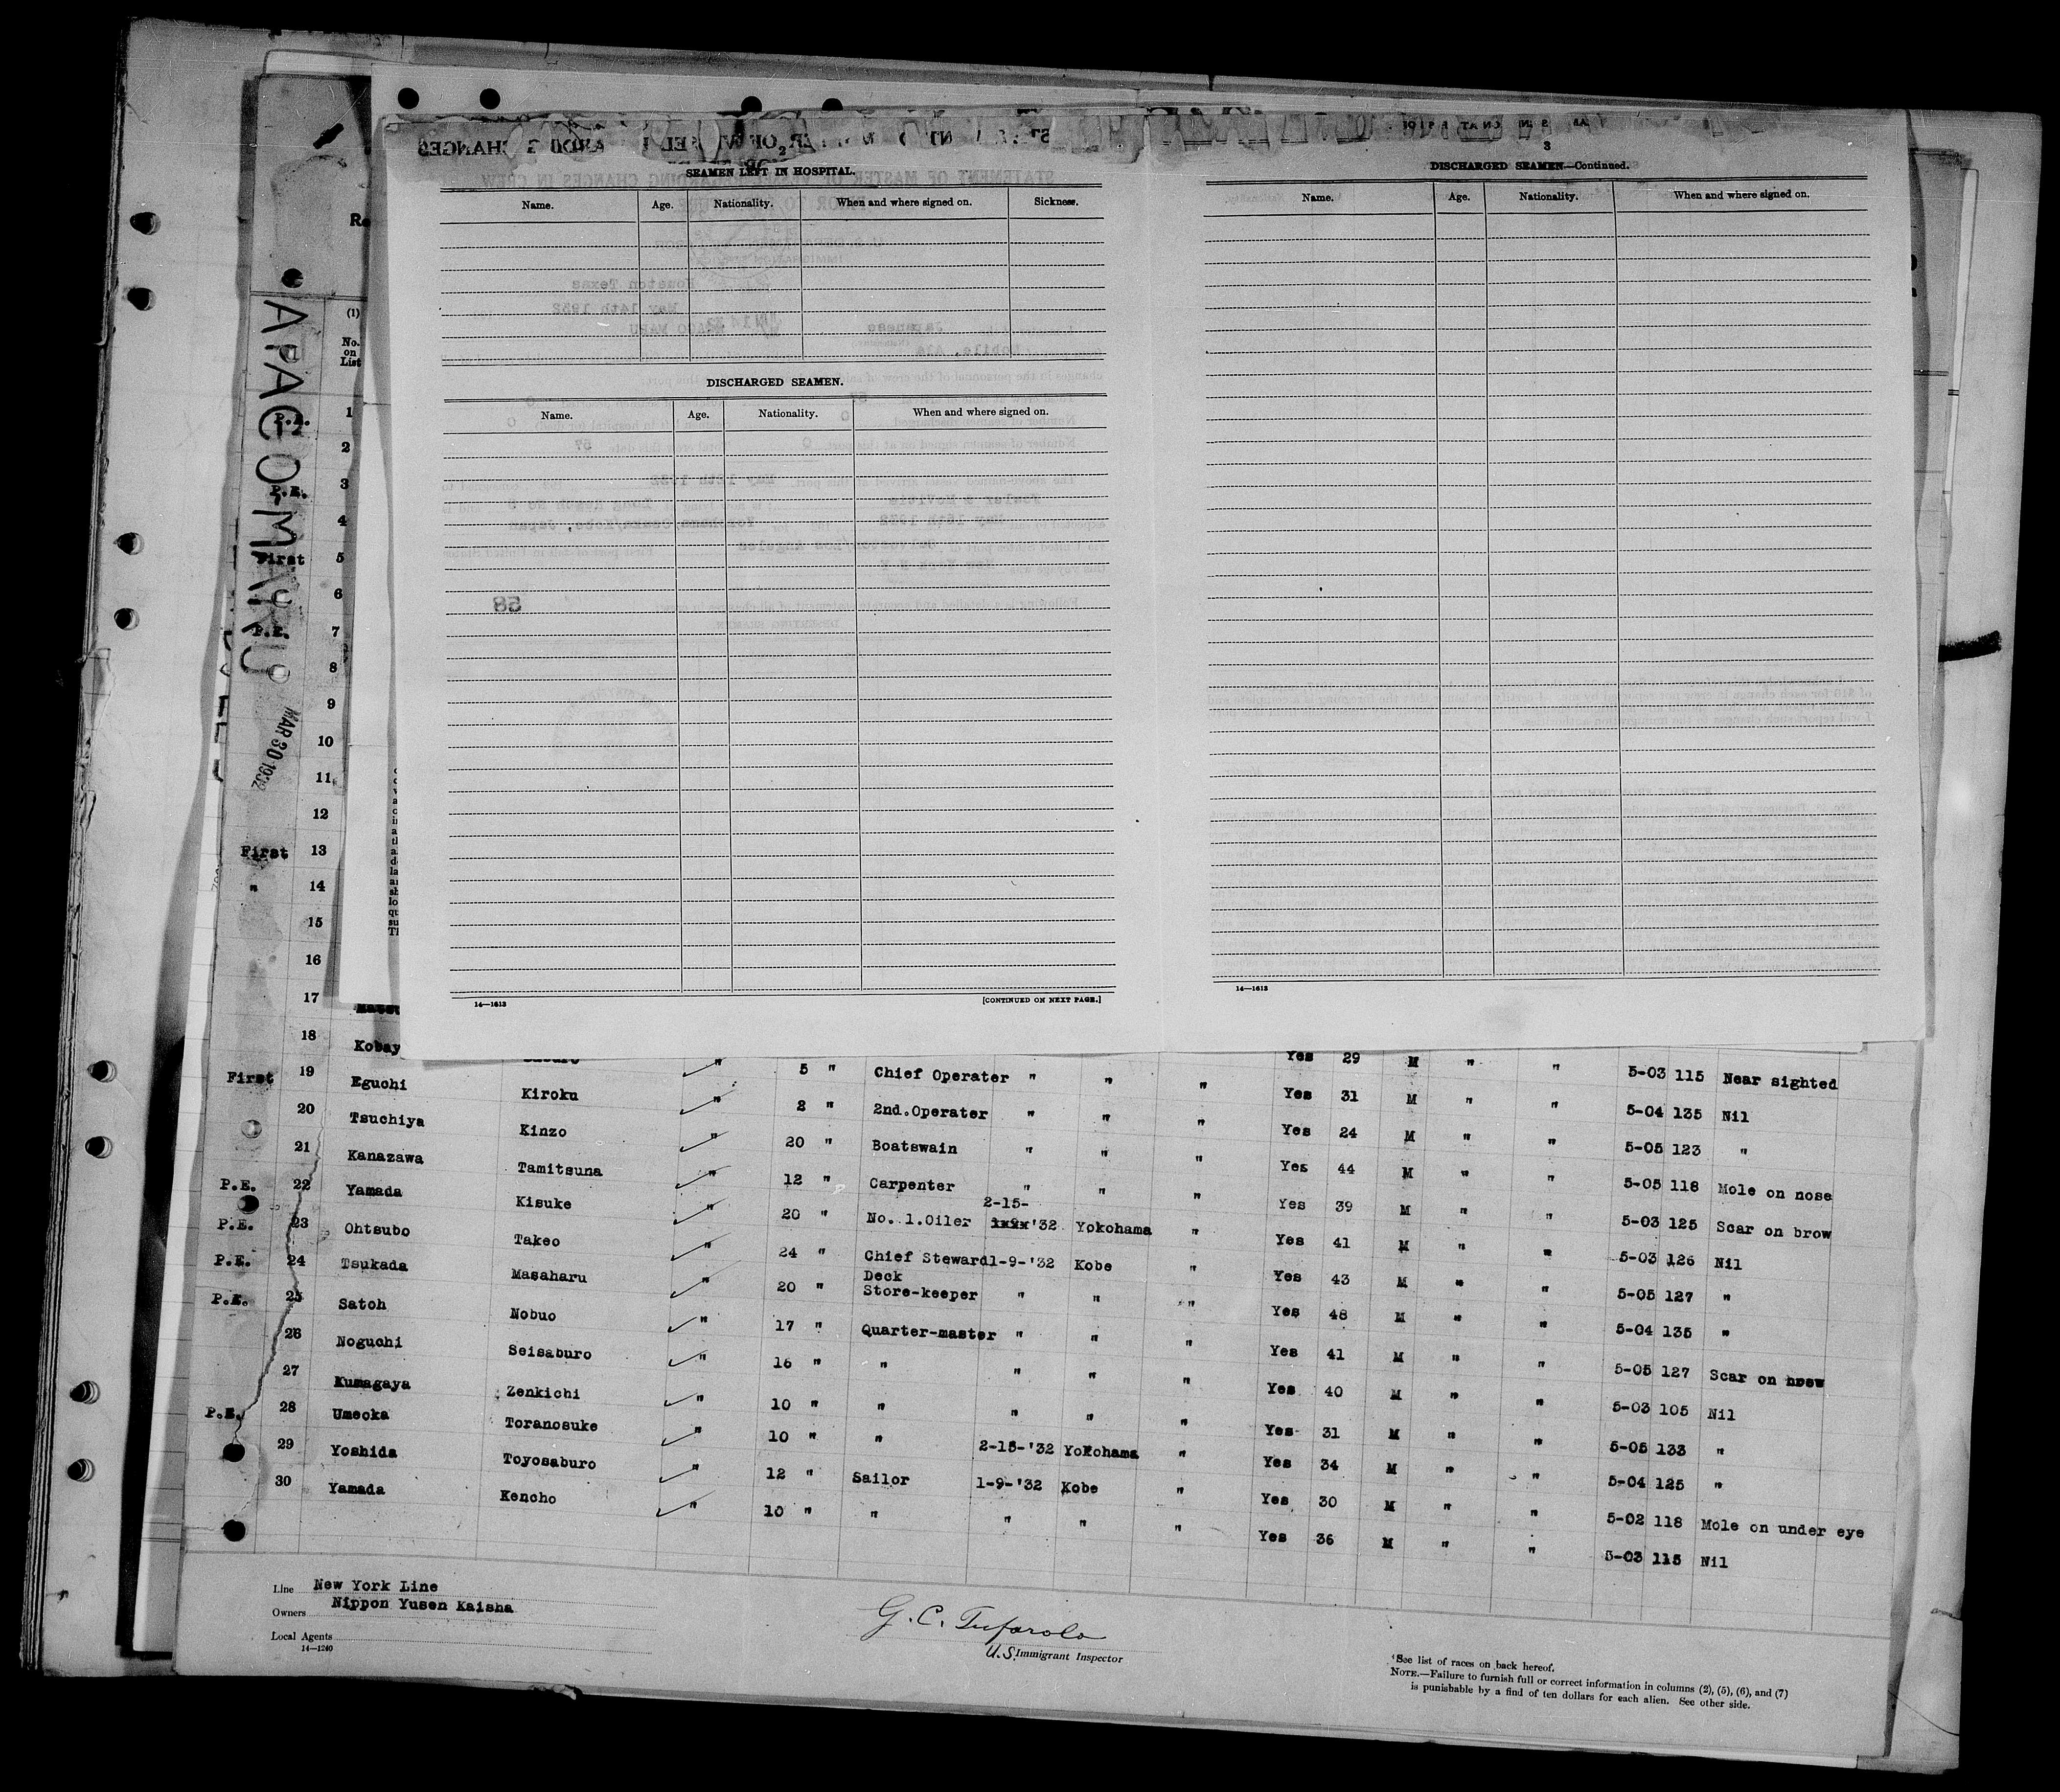 2
SEAMEN LEFT IN HOSPITAL.
Name. Age. Nationality. When and where signed on. Sickness.
DISCHARGED SEAMEN.
Name. Age. Nationality. When and where signed on.
14—1613 [CONTINUED ON NEXT PAGE.]
3
DISCHARGED SEAMEN—Continued.
Name. Age. Nationality. When and where signed on.
14—1613
APAGO-MARU
MAR 30 1932
(1)
No. on List
P.E. 1
2
P.E. 3
4
First 5
6
P.E. 7
8
9
10
11
12
First 13
" 14
15
16
17
18 Kobay
5 " Chief Operater " " " Yes 29 M " " 5-03 115 Near sighted
First 19 Eguchi Kiroku " 2 " 2nd.Operater " " " Yes 31 M " " 5-04 135 Nil
20 Tsuchiya Kinzo " 20 " Boatswain " " " Yes 24 M " " 5-05 123 "
21 Kanazawa Tamitsuna " 12 " Carpenter " " " Yes 44 M " " 5-05 118 Mole on nose
P.E. 22 Yamada Kisuke " 20 " No. 1.Oiler 2-15-'32 Yokohama " Yes 39 M " " 5-03 125 Scar on brow
P.E. 23 Ohtsubo Takeo " 24 " Chief Steward 1-9-'32 Kobe " Yes 41 M " " 5-03 126 Nil
P.E. 24 Tsukada Masaharu " 20 " Deck Store-keeper " " " Yes 43 M " " 5-05 127 "
P.E. 25 Satoh Nobuo " 17 " Quarter-master " " " Yes 48 M " " 5-04 135 "
26 Noguchi Seisaburo " 16 " " " " " Yes 41 M " " 5-05 127 Scar on brow
27 Kumagaya Zenkichi " 10 " " " " " Yes 40 M " " 5-03 105 Nil
P.E. 28 Umeoka Toranosuke " 10 " " 2-15-'32 Yokohama " Yes 31 M " " 5-05 133 "
29 Yoshida Toyosaburo " 12 " Sailor 1-9-'32 Kobe " Yes 34 M " " 5-04 125 "
30 Yamada Kencho " 10 " " " " " Yes 30 M " " 5-02 118 Mole on under eye
Yes 36 M " " 5-03 115 Nil
Line New York Line
Owners Nippon Yusen Kaisha
Local Agents
14—1240
G. C. Tufarolo
U.S. Immigrant Inspector
See list of races on back hereof.
NOTE.—Failure to furnish full or correct information in columns (2), (5), (6), and (7)
is punishable by a find of ten dollars for each alien. See other side.